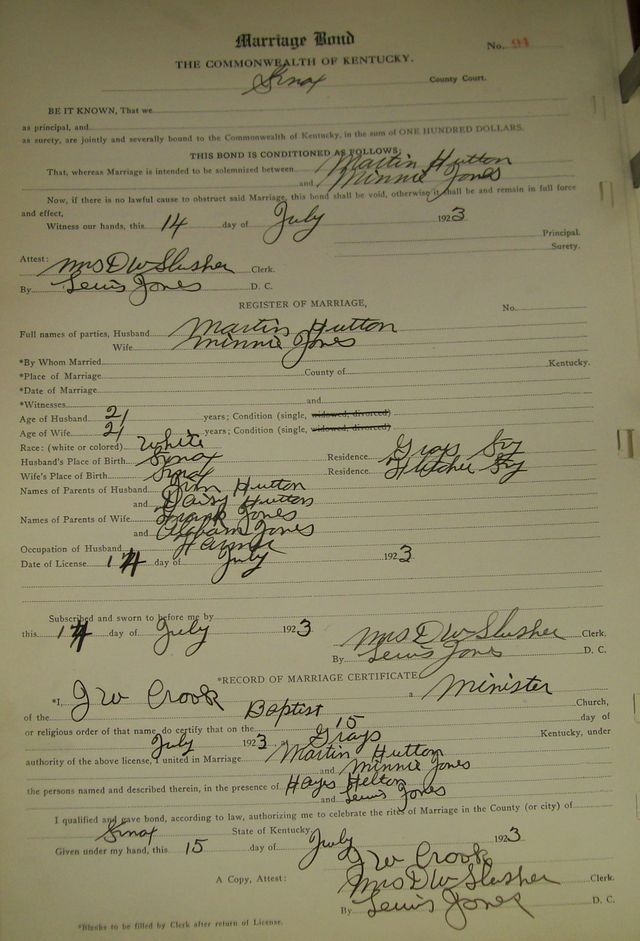 Marriage Bond
No. 94
THE COMMONWEALTH OF KENTUCKY.
Knox County Court.
BE IT KNOWN, That we
as principal, and
as surety, are jointly and severally bound to the Commonwealth of Kentucky, in the sum of ONE HUNDRED DOLLARS.
THIS BOND IS CONDITIONED AS FOLLOWS:
That, whereas Marriage is intended to be solemnized between Martin Hutton
and Minnie Jones
Now, if there is no lawful cause to obstruct said Marriage, this bond shall be void, otherwise it shall be and remain in full force
and effect,
Witness our hands, this 14 day of July 1923
Principal.
Surety.
Attest: Mrs D W Slusher Clerk.
By Lewis Jones D. C.
REGISTER OF MARRIAGE,
No.
Full names of parties, Husband Martin Hutton
Wife Minnie Jones
*By Whom Married
*Place of Marriage County of Kentucky.
*Date of Marriage
*Witnesses and
Age of Husband 21 years; Condition (single, widowed, divorced)
Age of Wife 21 years; Condition (single, widowed, divorced)
Race: (white or colored) White
Husband's Place of Birth Knox Residence Grays Ky
Wife's Place of Birth Knox Residence Ky
Names of Parents of Husband Jim Hutton
and Daisy Hutton
Names of Parents of Wife Frank Jones
and Jones
Occupation of Husband Farmer
Date of License 14 day of July 1923
Subscribed and sworn to before me by
this 14 day of July 1923 Mrs D W Slusher Clerk.
By Lewis Jones D. C.
*RECORD OF MARRIAGE CERTIFICATE
*I, J W Crook a Minister
of the Baptist Church,
or religious order of that name, do certify that on the 15 day of
July 1923, at Grays Kentucky, under
authority of the above license, I united in Marriage Martin Hutton
and Minnie Jones
the persons named and described therein, in the presence of Hayes Helton
and Lewis Jones
I qualified and gave bond, according to law, authorizing me to celebrate the rites of Marriage in the County (or city) of
Knox State of Kentucky
Given under my hand, this 15 day of July 1923
J W Crook
A Copy, Attest: Mrs D W Slusher Clerk.
By Lewis Jones D. C.
*Blanks to be filled by Clerk after return of License.